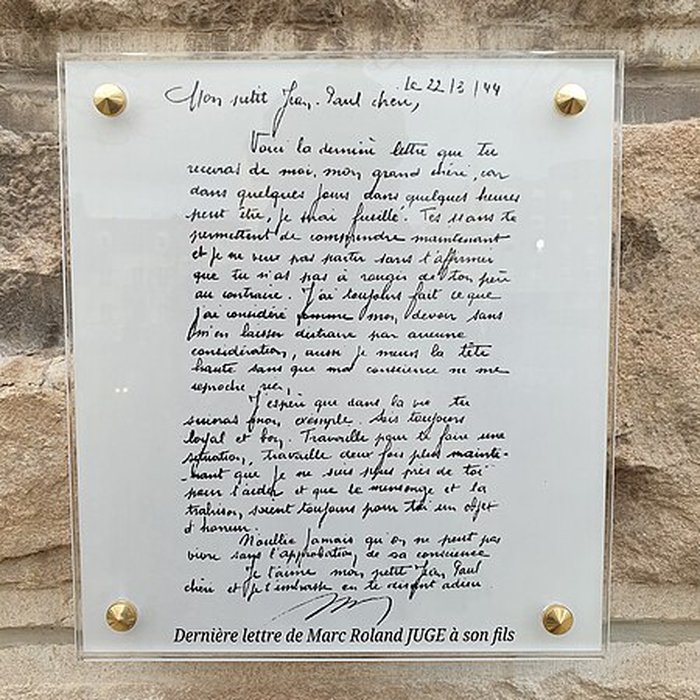 Le 22/3/44
Mon petit Jean-Paul chéri,
Voici la dernière lettre que tu
recevras de moi, mon grand chéri, car
dans quelques jours dans quelques heures
peut être, je serai fusillé. Tes 11 ans te
permettent de comprendre maintenant
et je ne veux pas partir sans t'affirmer
que tu n'as pas à rougir de ton père
au contraire. J'ai toujours fait ce que
j'ai considéré comme mon devoir sans
m'en laisser distraire par aucune
considération, aussi je meurs la tête
haute sans que ma conscience ne me
reproche rien,
J'espère que dans la vie tu
suivras mon exemple. Sois toujours
loyal et bon. Travaille pour te faire une
situation, travaille deux fois plus mainte-
-nant que je ne suis plus près de toi
pour t'aider et que le mensonge et la
trahison, soient toujours pour toi un objet
d'horreur.
N'oublie jamais qu'on ne peut pas
vivre sans l'approbation de sa conscience
Je t'aime mon petit Jean Paul
chéri et je t'embrasse en te disant adieu.
Dernière lettre de Marc Roland JUGE à son fils